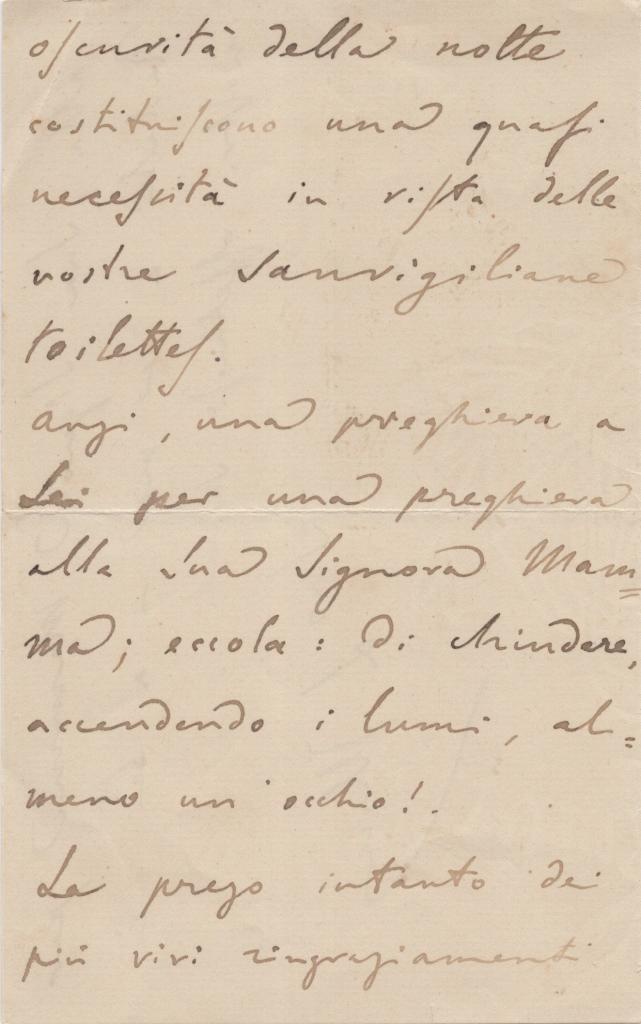 oscurità della notte
costituiscono una quasi
necessità in vista delle
nostre Sanvigiliane
toilettes.
Anzi, una preghiera a
Lei per una preghiera
alla Sua Signora Mam=
mà; eccola: di chiudere,
accendendo i lumi, al=
meno un occhio!.
La prego intanto dei
più vivi ringraziamenti